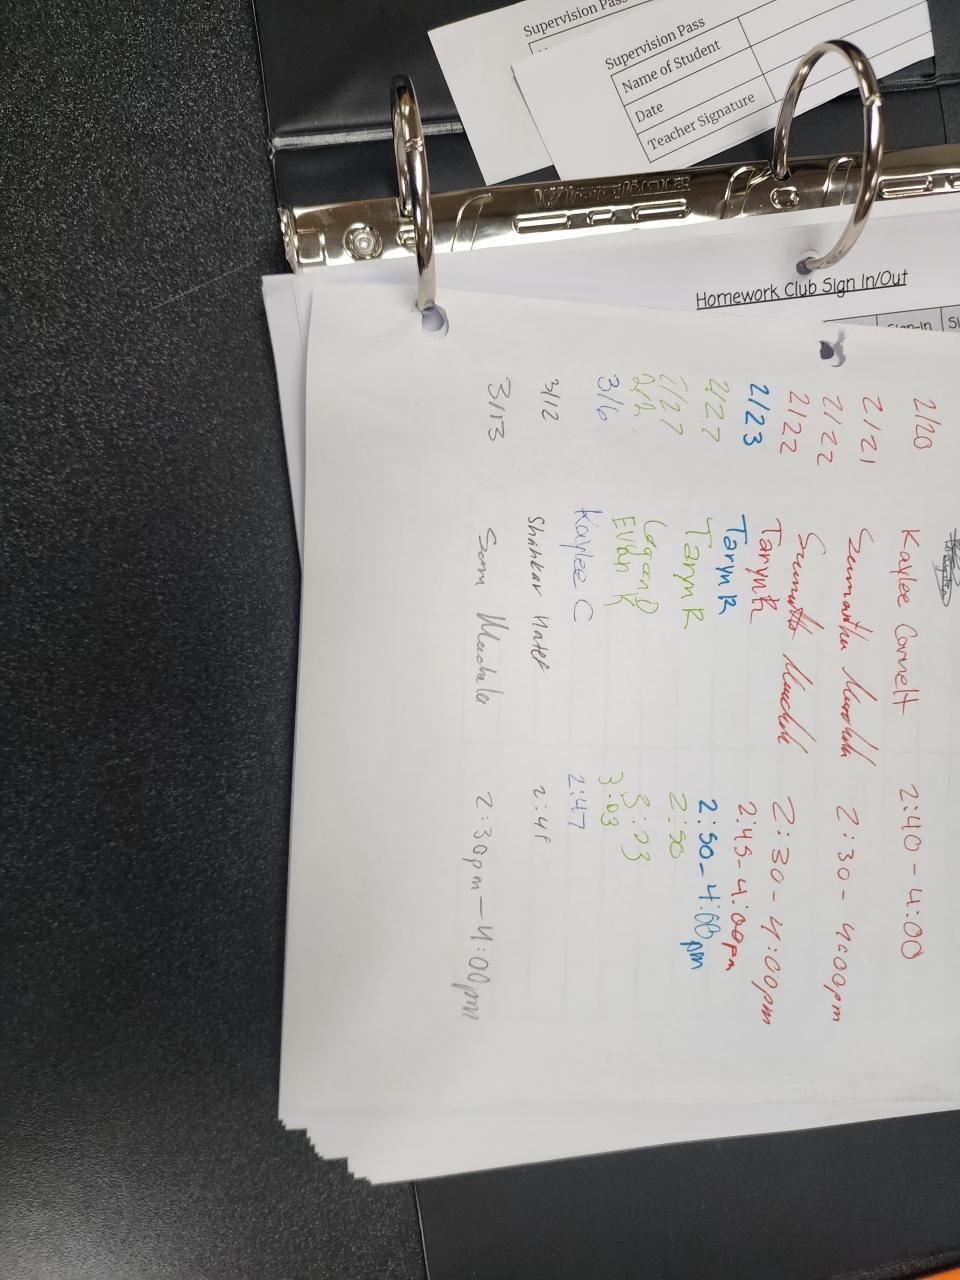 Supervision Pass
Supervision Pass
Name of Student
Date
Teacher Signature
Homework Club Sign In/Out
Sign-in
2/20 Kaylee 2:40 - 4:00
2/21 Samantha 2:30 - 4:00pm
2/22 Samantha 2:30 - 4:00pm
2/22 Taryn R 2:45 - 4:00pm
2/23 Taryn R 2:50 - 4:00pm
2/27 Taryn R 2:50
2/27 Logan D
Evan K 3:03
3/6 Kaylee C 2:47
3/12 Shankar
3/13 Sam 2:30pm - 4:00pm